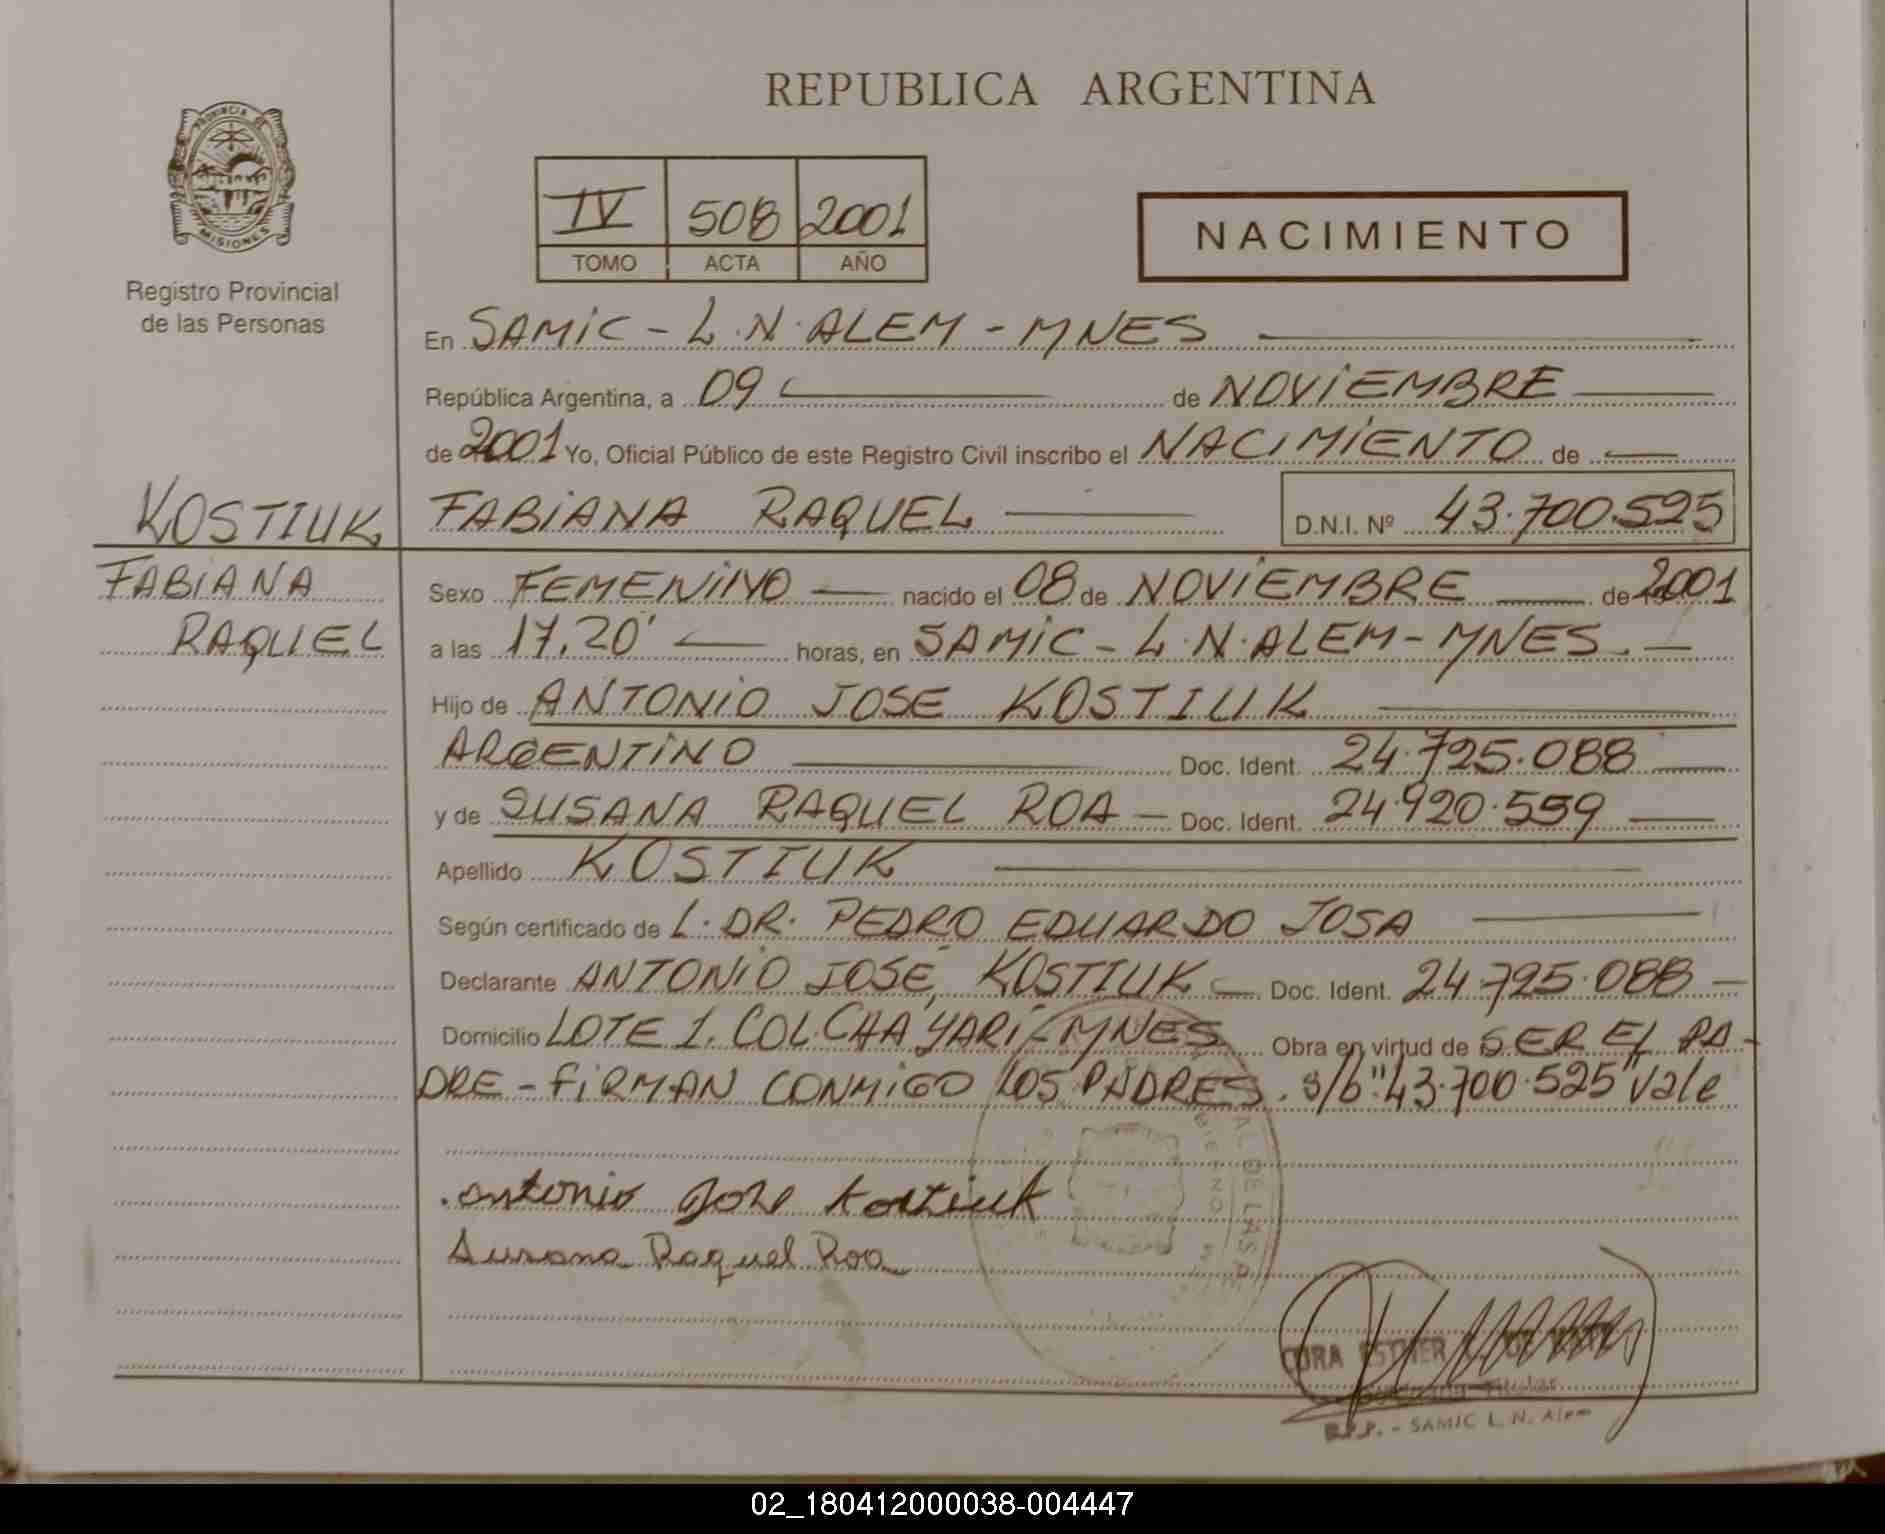 REPUBLICA ARGENTINA
PROVINCIA DE
MISIONES
Registro Provincial
de las Personas
IV 508 2001
TOMO ACTA AÑO
NACIMIENTO
En SAMIC - L.N. ALEM - MNES
República Argentina, a 09 de NOVIEMBRE
de 2001 Yo, Oficial Público de este Registro Civil inscribo el NACIMIENTO de
KOSTIUK
FABIANA
RAQUEL
FABIANA RAQUEL D.N.I. Nº 43.700.525
Sexo FEMENINO nacido el 08 de NOVIEMBRE de 2001
a las 17,20' horas, en SAMIC - L.N. ALEM - MNES.
Hijo de ANTONIO JOSE KOSTIUK
ARGENTINO Doc. Ident. 24.725.088
y de SUSANA RAQUEL ROA - Doc. Ident. 24.920.559
Apellido KOSTIUK
Según certificado de L. DR. PEDRO EDUARDO JOSA
Declarante ANTONIO JOSE KOSTIUK Doc. Ident. 24.725.088
Domicilio LOTE 1. COL. CHAYARI - MNES Obra en virtud de SER EL PA-
DRE - FIRMAN CONMIGO LOS PADRES. s/b "43.700.525" vale
Antonio Jose Kostiuk
Susana Raquel Roa
ESTHER
Titular
R.P.P. - SAMIC L.N. Alem
02_180412000038-004447